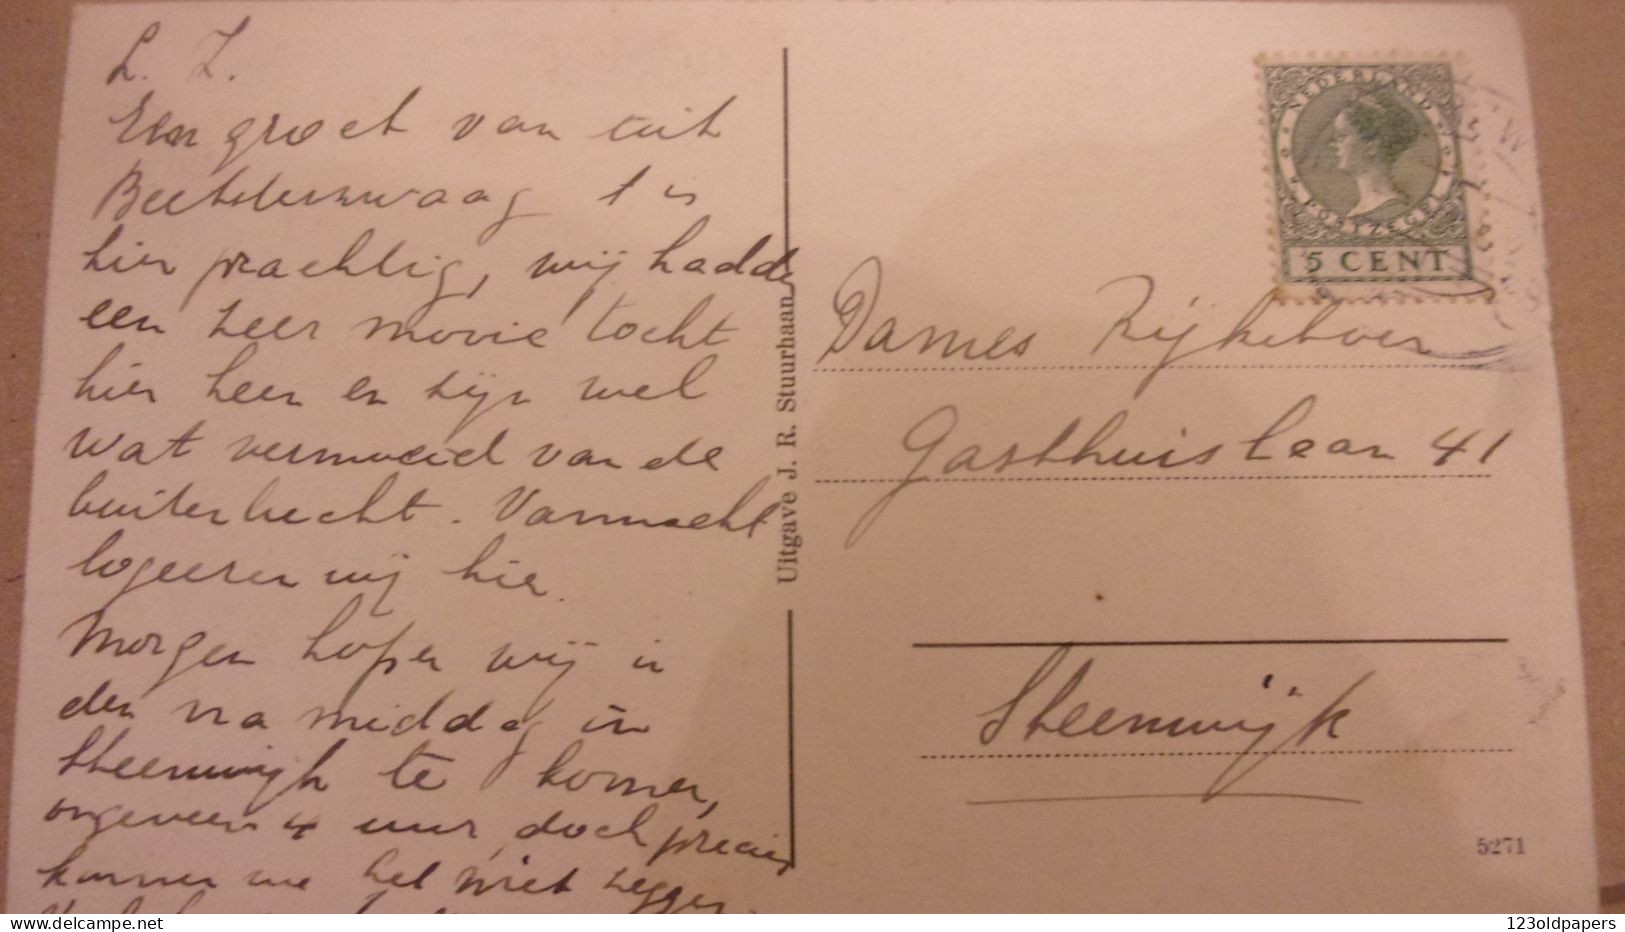 L. Z.
Een groet van uit
Beetsterzwaag 't is
hier prachtig, wij hadden
een zeer mooie tocht
hier heen en zijn wel
wat vermoeid van de
buitenlucht. Vannacht
logeeren wij hier.
Morgen hopen wij in
den na middag in
Steenwijk te komen,
ongeveer 4 uur, doch precies
kunnen we het niet zeggen.
Uitgave J. R. Stuurhaan
NEDERLAND
POSTZEGEL
5 CENT
Dames Rijkeboer
Gasthuislaan 41
Steenwijk
5271
123oldpapers